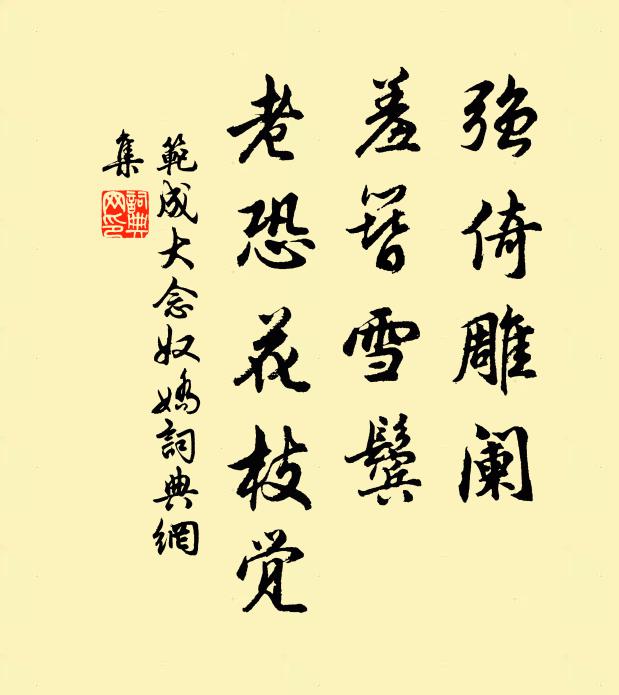 强倚雕阑
羞簪雪鬓
老恐花枝觉
範成大念奴嬌詞典網
集
詞典网印